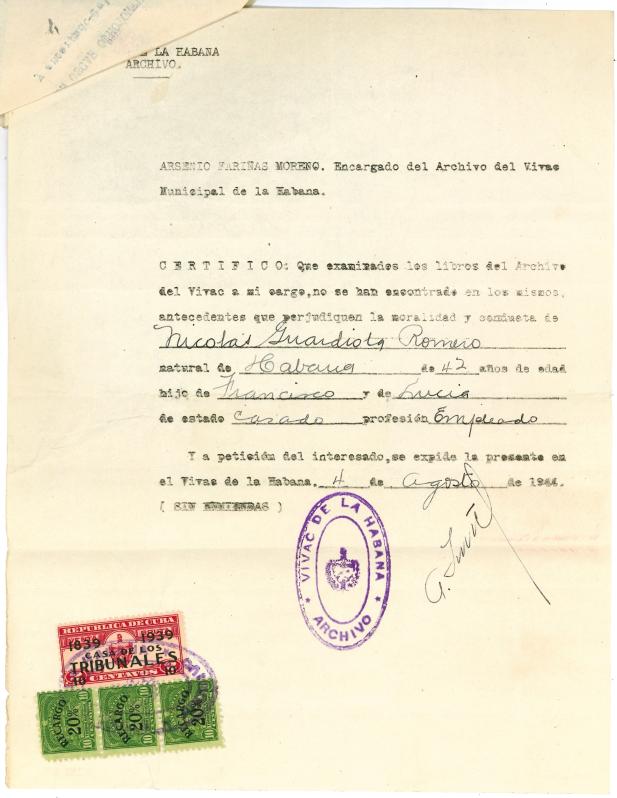 DE LA HABANA
ARCHIVO.
ARSENIO FARIÑAS MORENO. Encargado del Archivo del Vivac
Municipal de la Habana.
C E R T I F I C O: Que examinados los libros del Archivo
del Vivac a mi cargo, no se han encontrado en los mismos,
antecedentes que perjudiquen la moralidad y conducta de
Nicolás Guardiola Romero
natural de Habana de 42 años de edad
hijo de Francisco y de Lucia
de estado Casado profesión Empleado
Y a petición del interesado, se expide la presente en
el Vivac de la Habana, 4 de agosto de 1944.
( SIN ENMIENDAS )
VIVAC DE LA HABANA
ARCHIVO
REPUBLICA DE CUBA
1839 1939
CASA DE LOS
TRIBUNALES
10 10
CENTAVOS
RECARGO 20% 10
RECARGO 20% 10
RECARGO 20% 10